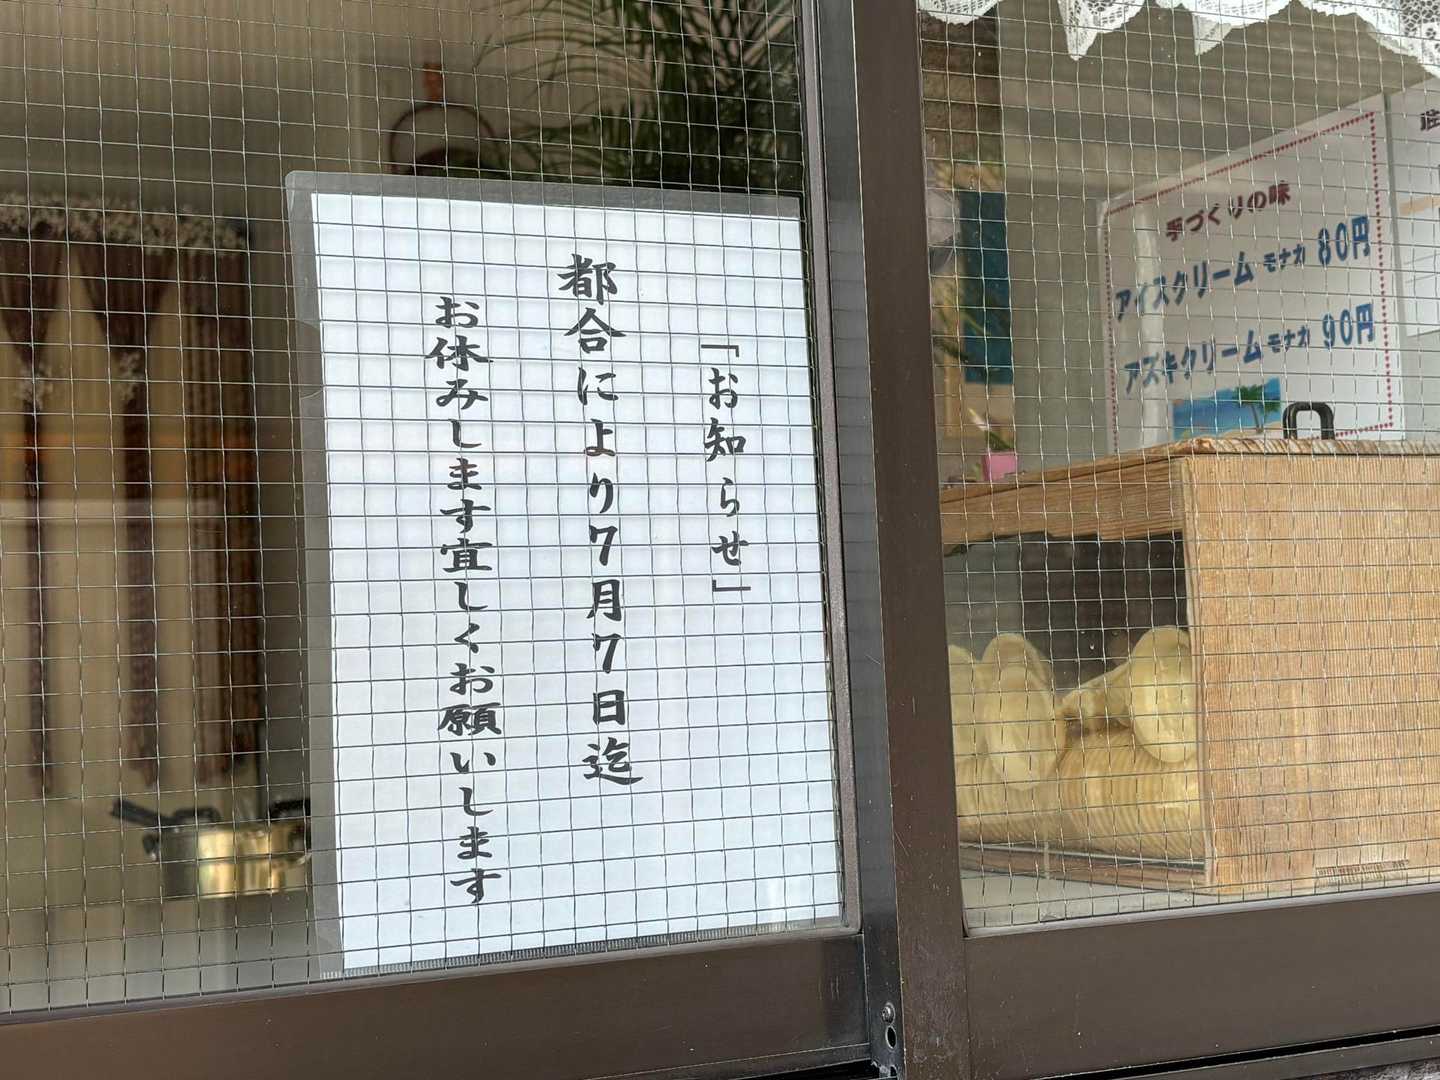 「お知らせ」
都合により7月7日迄
お休みします宜しくお願いします
手づくりの味
アイスクリーム モナカ 80円
アズキクリーム モナカ 90円